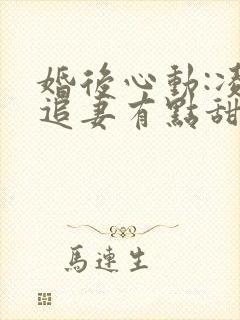 婚後心動:凌
追妻有點甜
馬連生